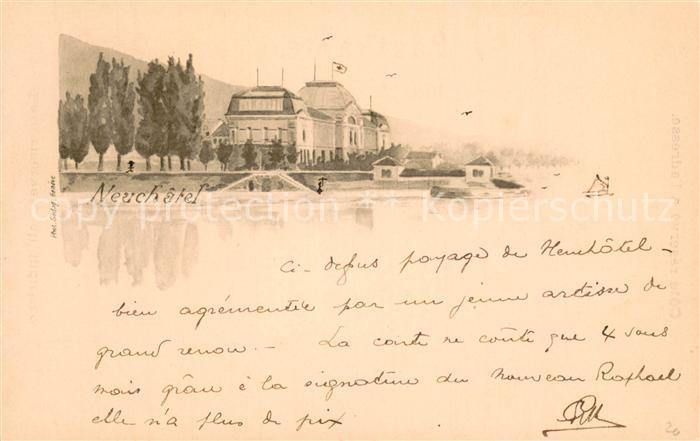 Neuchâtel
copy protection picture Kopierschutz
Ci-dessus paysage de Neuchâtel -
bien agrémentée par un jeune artiste de
grand renom. - La carte ne coûte que 4 sous
mais grâce à la signature du nouveau Raphael
elle n'a plus de prix
20